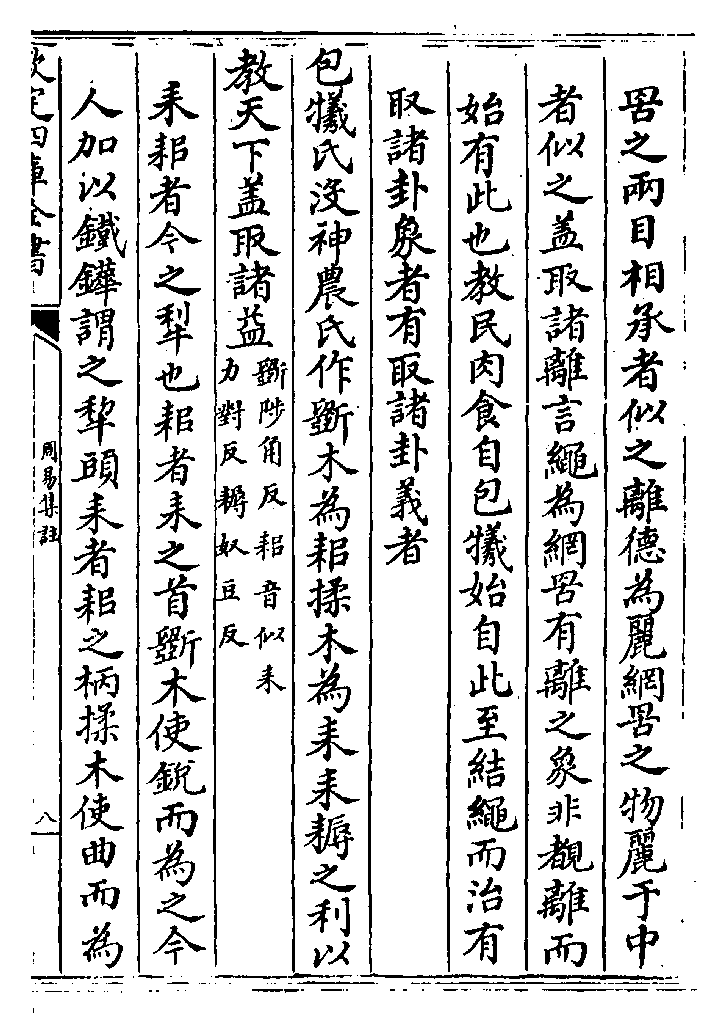 罟之兩目相承者似之離德為麗網罟之物麗于中
者似之盖取諸離言繩為網罟有離之象非覩離而
始有此也教民肉食自包犧始自此至結繩而治有
取諸卦象者有取諸卦義者
包犧氏沒神農氏作斵木為耜揉木為耒耒耨之利以
教天下盖取諸益斵陟角反耜音似耒
力對反耨奴豆反
耒耜者今之犁也耜者耒之首斵木使銳而為之今
人加以鐵鏵謂之犂頭耒者耜之柄揉木使曲而為
欽定四庫全書
周易集註
八